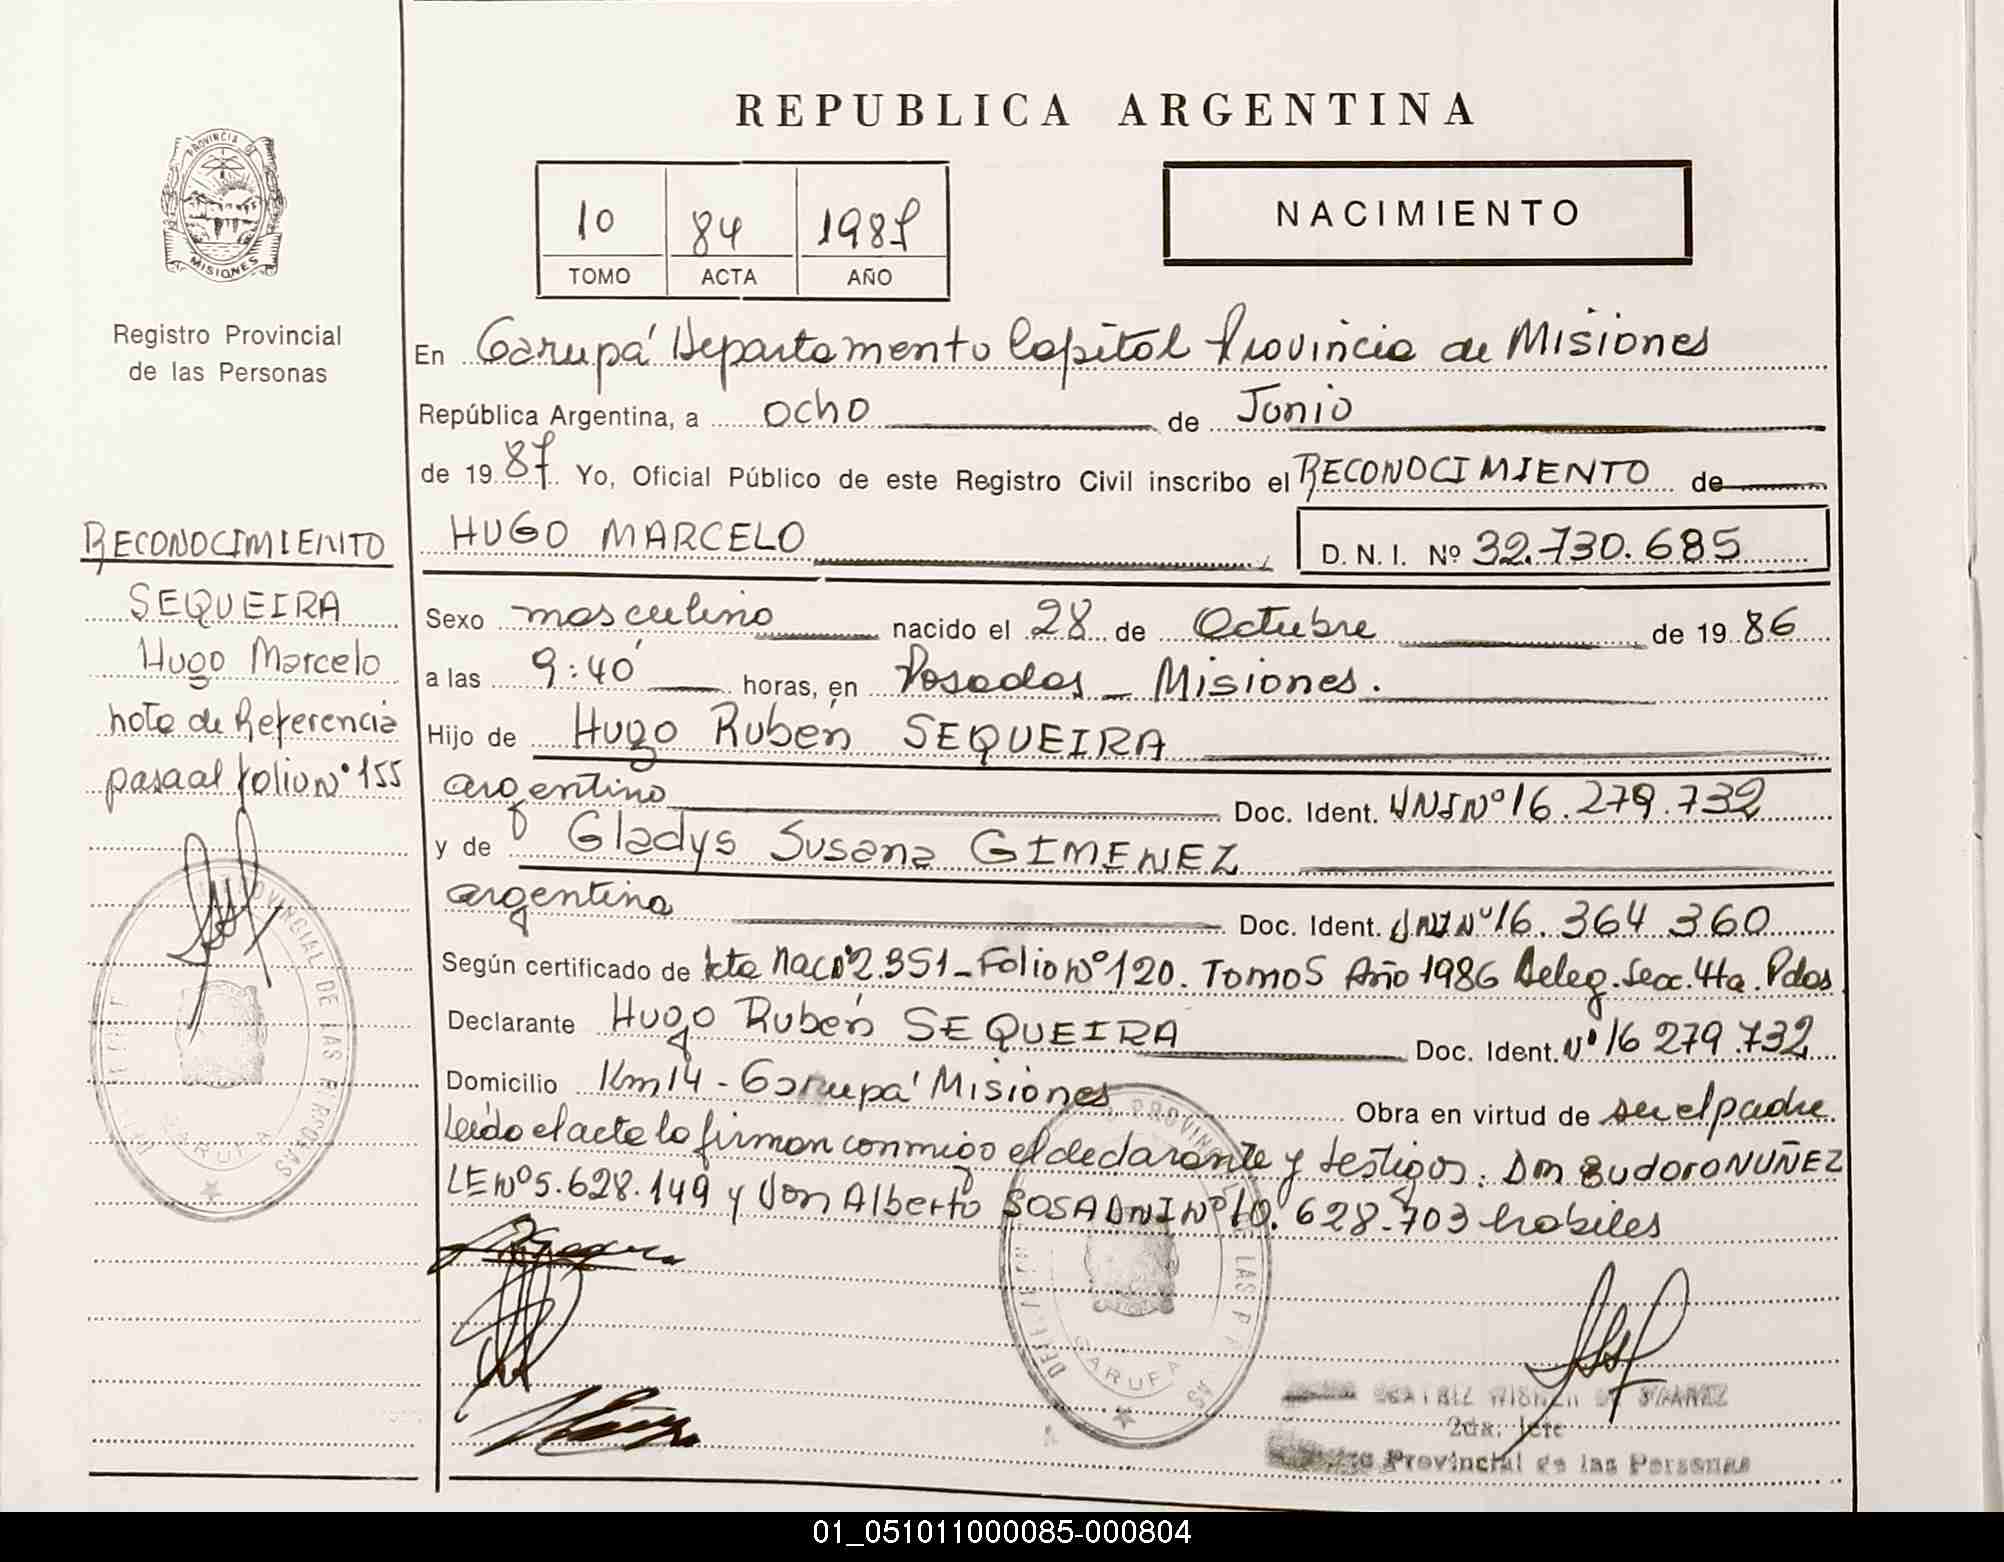 REPUBLICA ARGENTINA
PROVINCIA DE
MISIONES
Registro Provincial
de las Personas
10 84 1987
TOMO ACTA AÑO
NACIMIENTO
En Garupá Departamento Capital Provincia de Misiones
República Argentina, a ocho de Junio
de 1987. Yo, Oficial Público de este Registro Civil inscribo el RECONOCIMIENTO de
HUGO MARCELO D. N. I. Nº 32.730.685
Sexo masculino nacido el 28 de Octubre de 1986
a las 9:40 horas, en Posadas - Misiones.
Hijo de Hugo Rubén SEQUEIRA
argentino Doc. Ident. DNI Nº 16.279.732
y de Gladys Susana GIMENEZ
argentina Doc. Ident. DNI Nº 16.364.360
Según certificado de Acta Nac Nº 2.351 - Folio Nº 120. Tomo 5 Año 1986 Deleg. Secc. 4ta. Pdas.
Declarante Hugo Rubén SEQUEIRA Doc. Ident. Nº 16 279.732
Domicilio Km 14 - Garupá Misiones Obra en virtud de ser el padre.
Leído el acta la firman conmigo el declarante y testigos: Don Eudoro NUÑEZ
LE Nº 5.628.149 y Don Alberto SOSA DNI Nº 10.628.703 habiles
RECONOCIMIENTO
SEQUEIRA
Hugo Marcelo
nota de Referencia
pasa al folio Nº 155
PROVINCIAL DE LAS PERSONAS
GARUPA
PROVINCIAL DE LAS
GARUPA
BEATRIZ DE
2da. Jefe
Provincial de las Personas
01_051011000085-000804